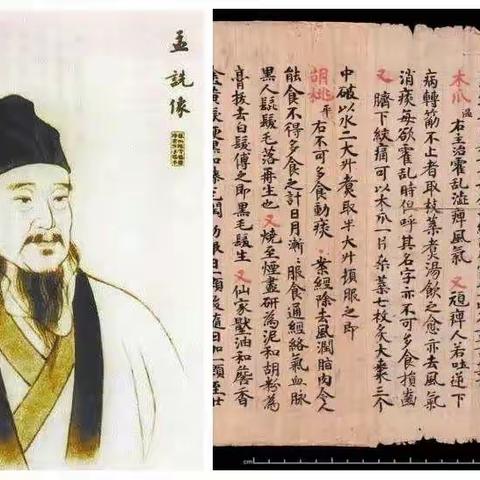 孟詵像
木瓜 温 右主治霍乱澁痺風氣 又 頑痺人若吐逆下
病轉筋不止者取枝葉煮湯飲之愈亦去風氣
消痰每欲霍乱時但呼其名字亦不可多食損齒
又 臍下絞痛可以木瓜一片桒葉七枚炙大棗三个
中破以水二大升煮取半大升頓服之即
胡桃 平 右不可多食動痰 案經除去風潤脂肉令人
能食不得多食之計日月漸服食通經絡氣血脉
黑人鬚髮毛落再生也 又 燒至煙盡研為泥和胡粉為
膏拔去白髮傅之即黑毛髮生 又 仙家壓油和詹香
cm